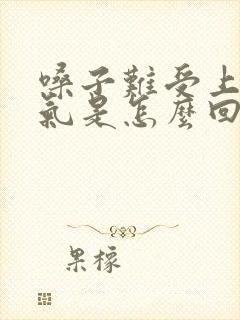 嗓子難受上
氣是怎麼回
果檬